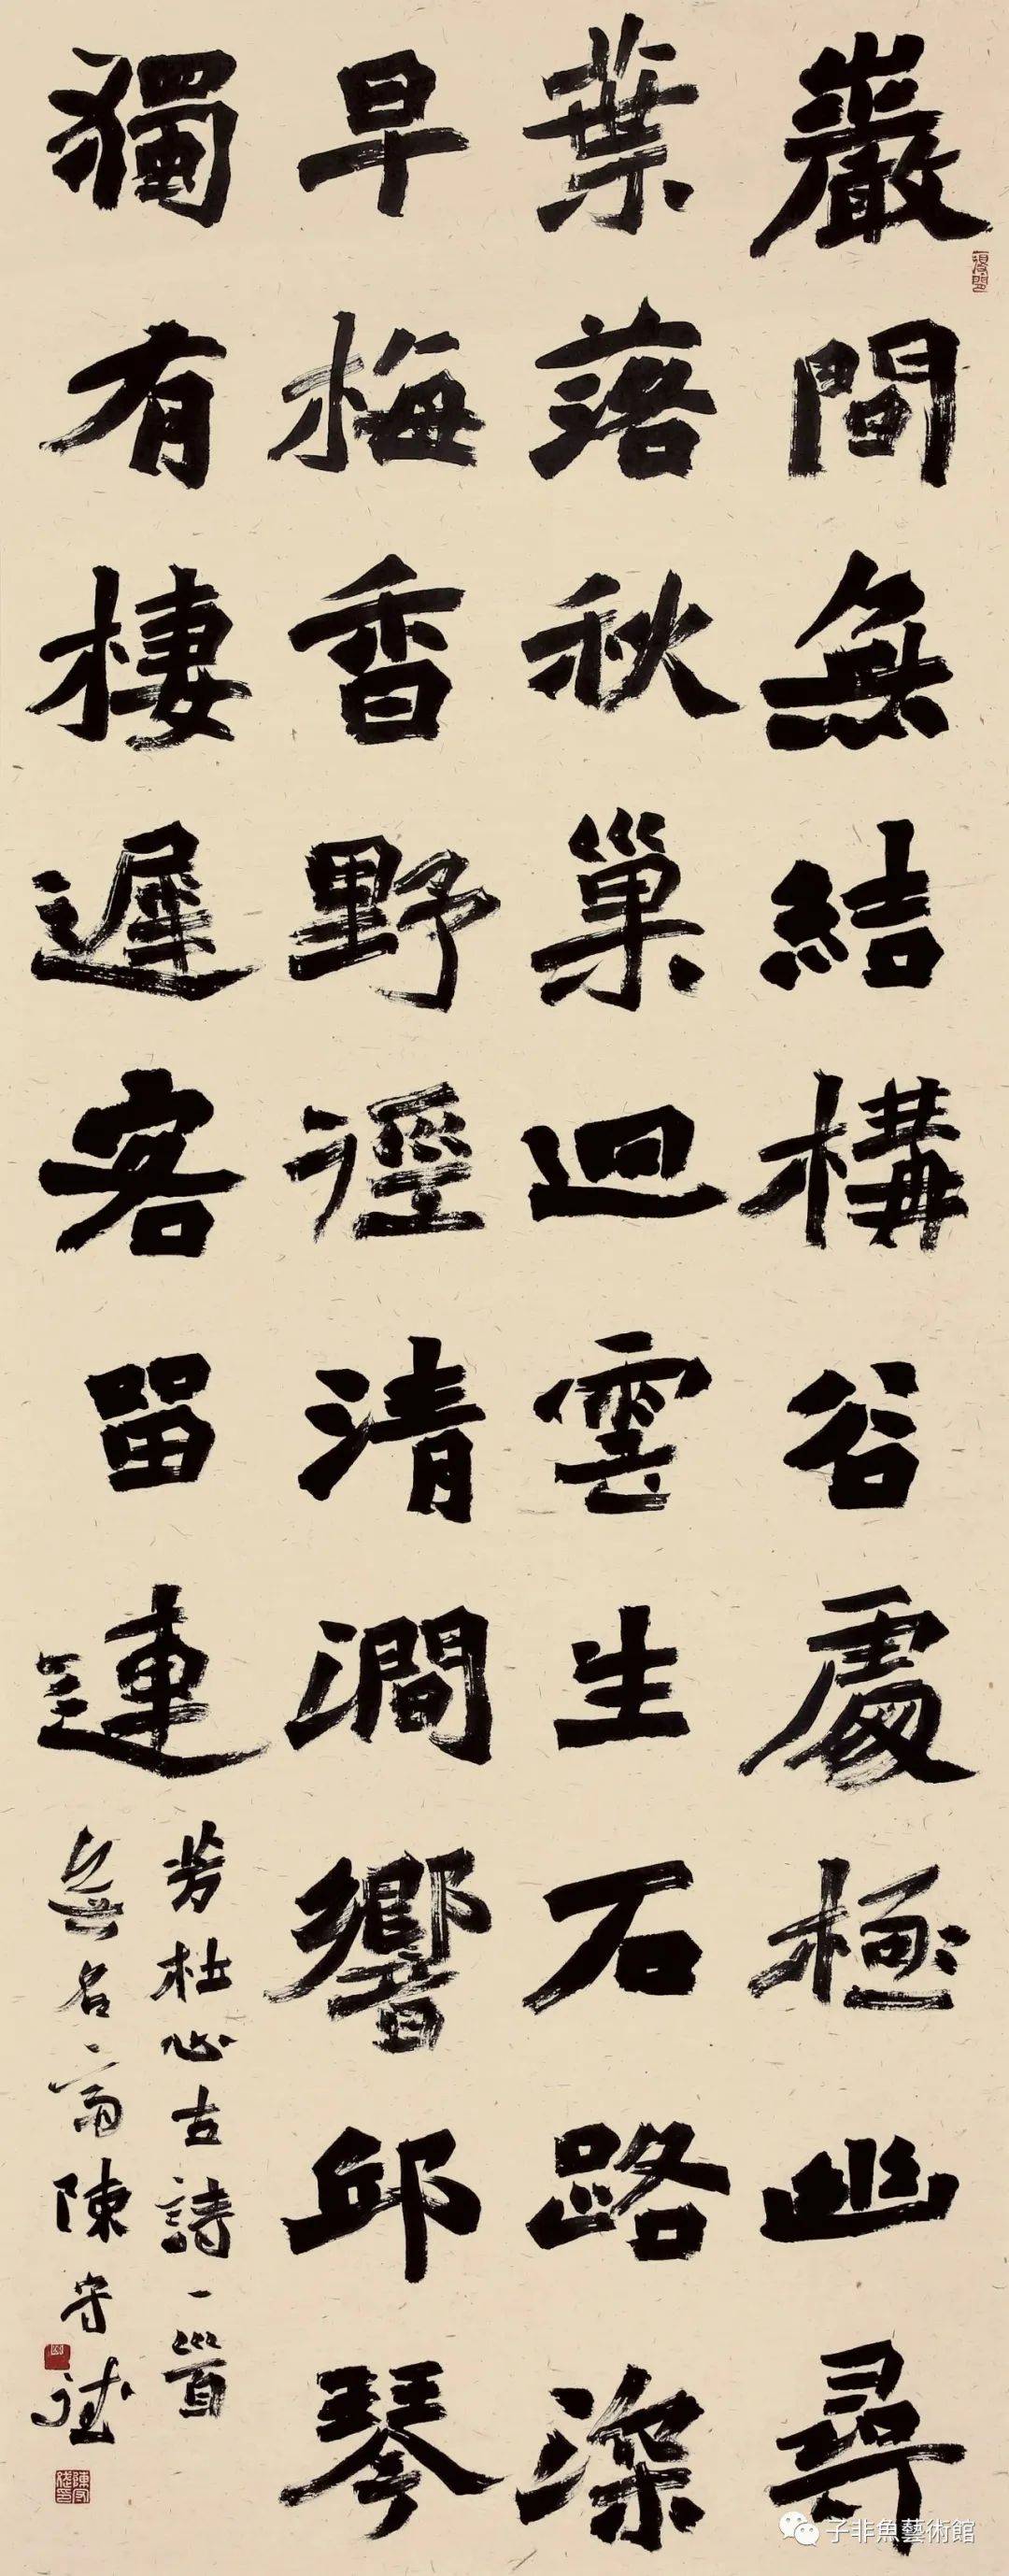 巖間無結構谷處極幽尋
葉落秋巢迥雲生石路深
早梅香野徑清澗響邱琴
獨有棲遲客留連
芳杜心古詩一首
無名齋陳守
子非魚藝術館